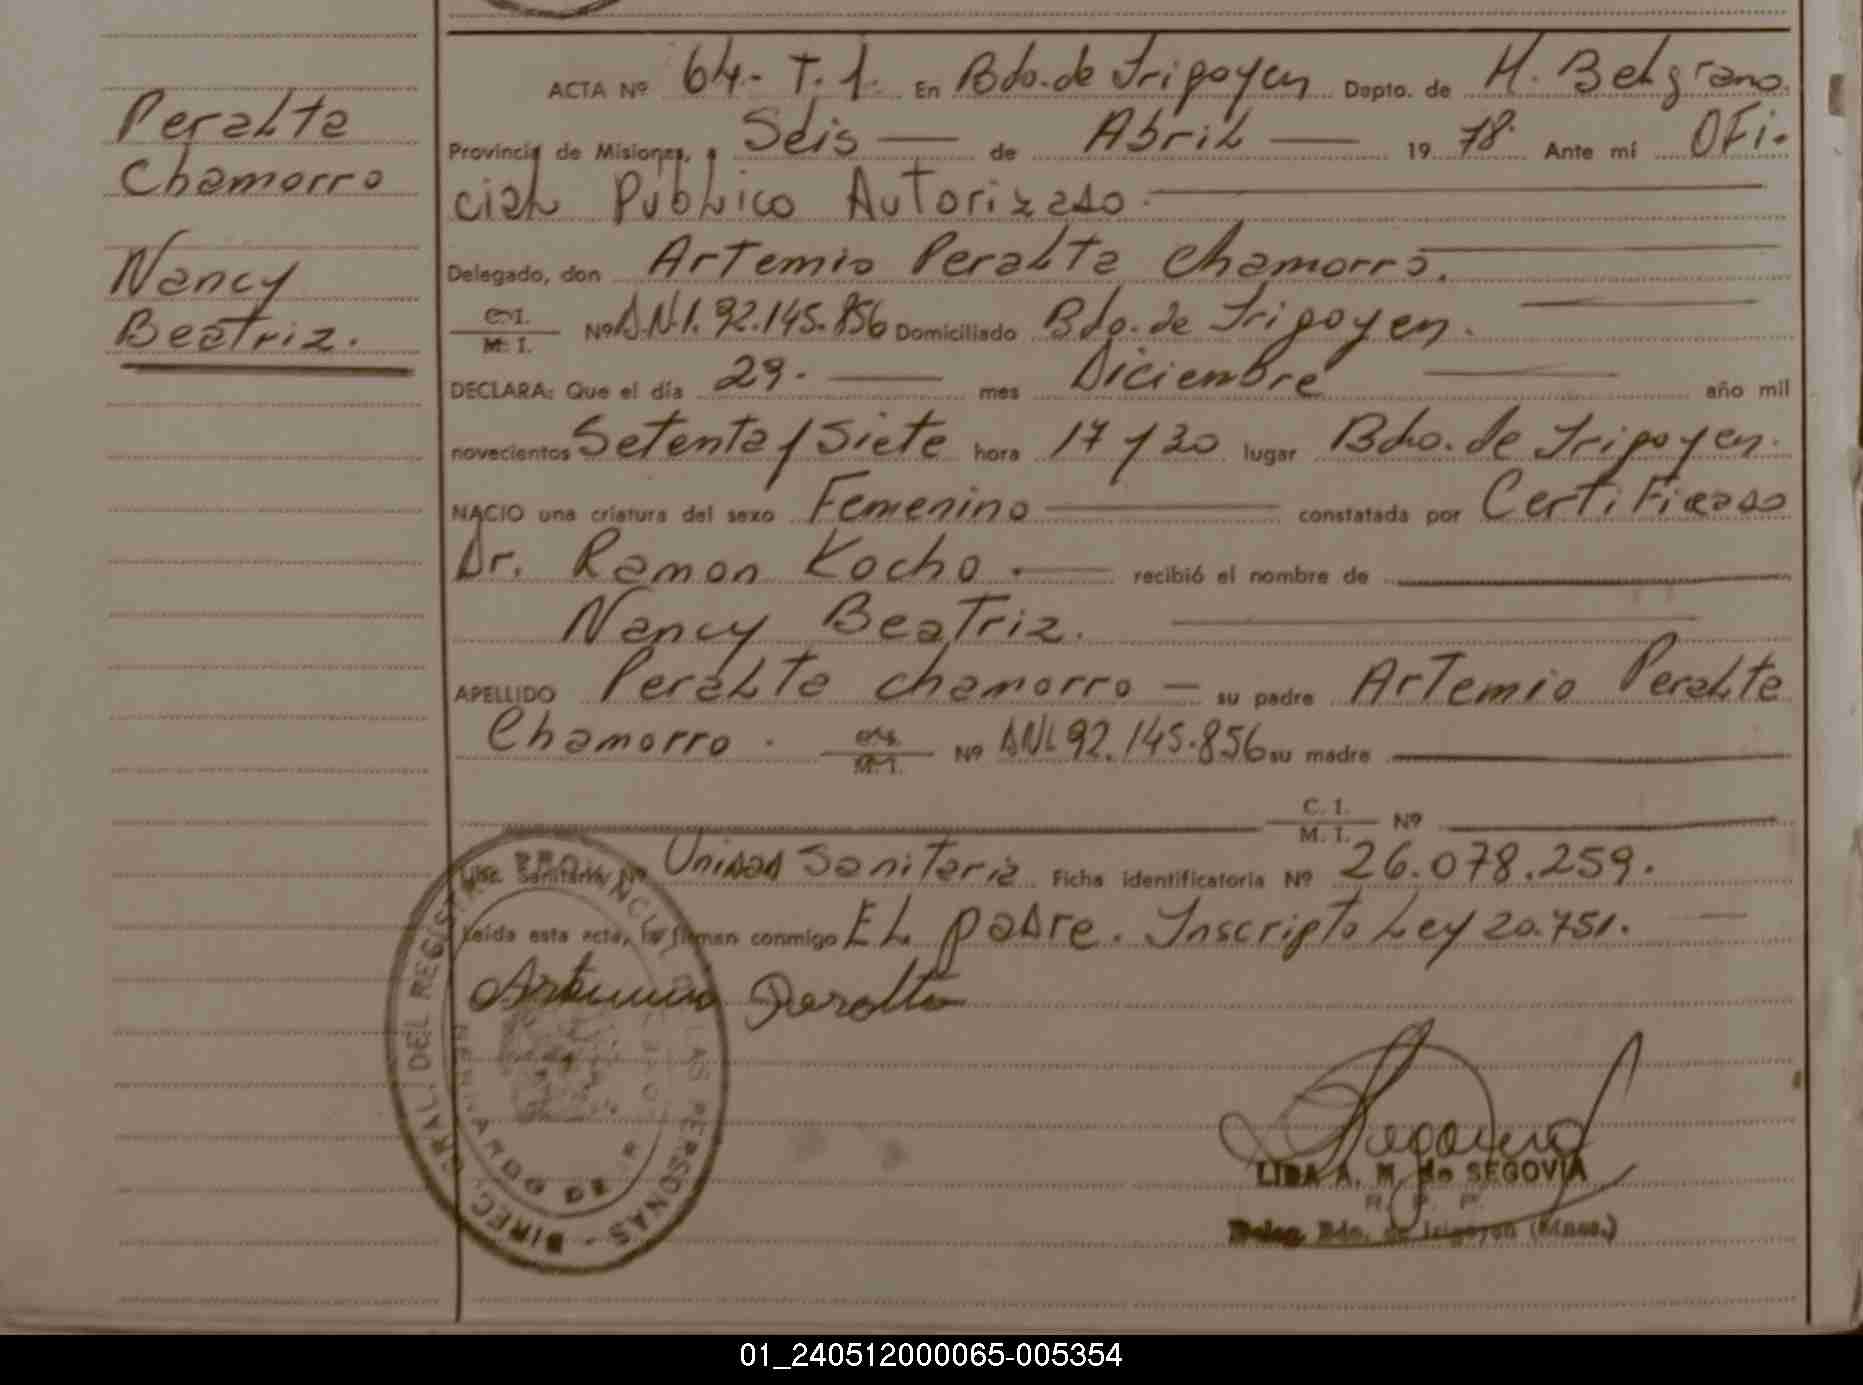 Peralta
Chamorro
Nancy
Beatriz.
ACTA Nº 64.- T.1. En Bdo. de Irigoyen Dopto. de M. Belgrano.
Provincia de Misiones, a Seis — de Abril — 19 78. Ante mí OFi-
cial Público Autorizado.
Delegado, don Artemio Peralta Chamorro.
C.I. / M. I. Nº D.N.I. 92.145.856 Domiciliado Bdo. de Irigoyen.
DECLARA: Que el día 29. — mes Diciembre — año mil
novecientos Setenta y Siete hora 17 y 30 lugar Bdo. de Irigoyen.
NACIO una criatura del sexo Femenino — constatada por Certificado
Dr. Ramon Kocho. — recibió el nombre de
Nancy Beatriz.
APELLIDO Peralta Chamorro — su padre Artemio Peralta
Chamorro. C.I. / M.I. Nº DNI. 92.145.856 su madre
C. I. / M. I. Nº
Lisc. Sanitaria Nº Unidad Sanitaria Ficha identificatoria Nº 26.078.259.
Leída esta acta, la firman conmigo EL padre. Inscripto Ley 20.751.
Artemio Peralta
DIREC. GRAL. DEL REGISTRO PROVINCIAL DE LAS PERSONAS
BERNARDO DE I
Segovia
LIDA A. M. de SEGOVIA
R. P. P.
Deleg. Bdo. de Irigoyen (Mnes.)
01_240512000065-005354